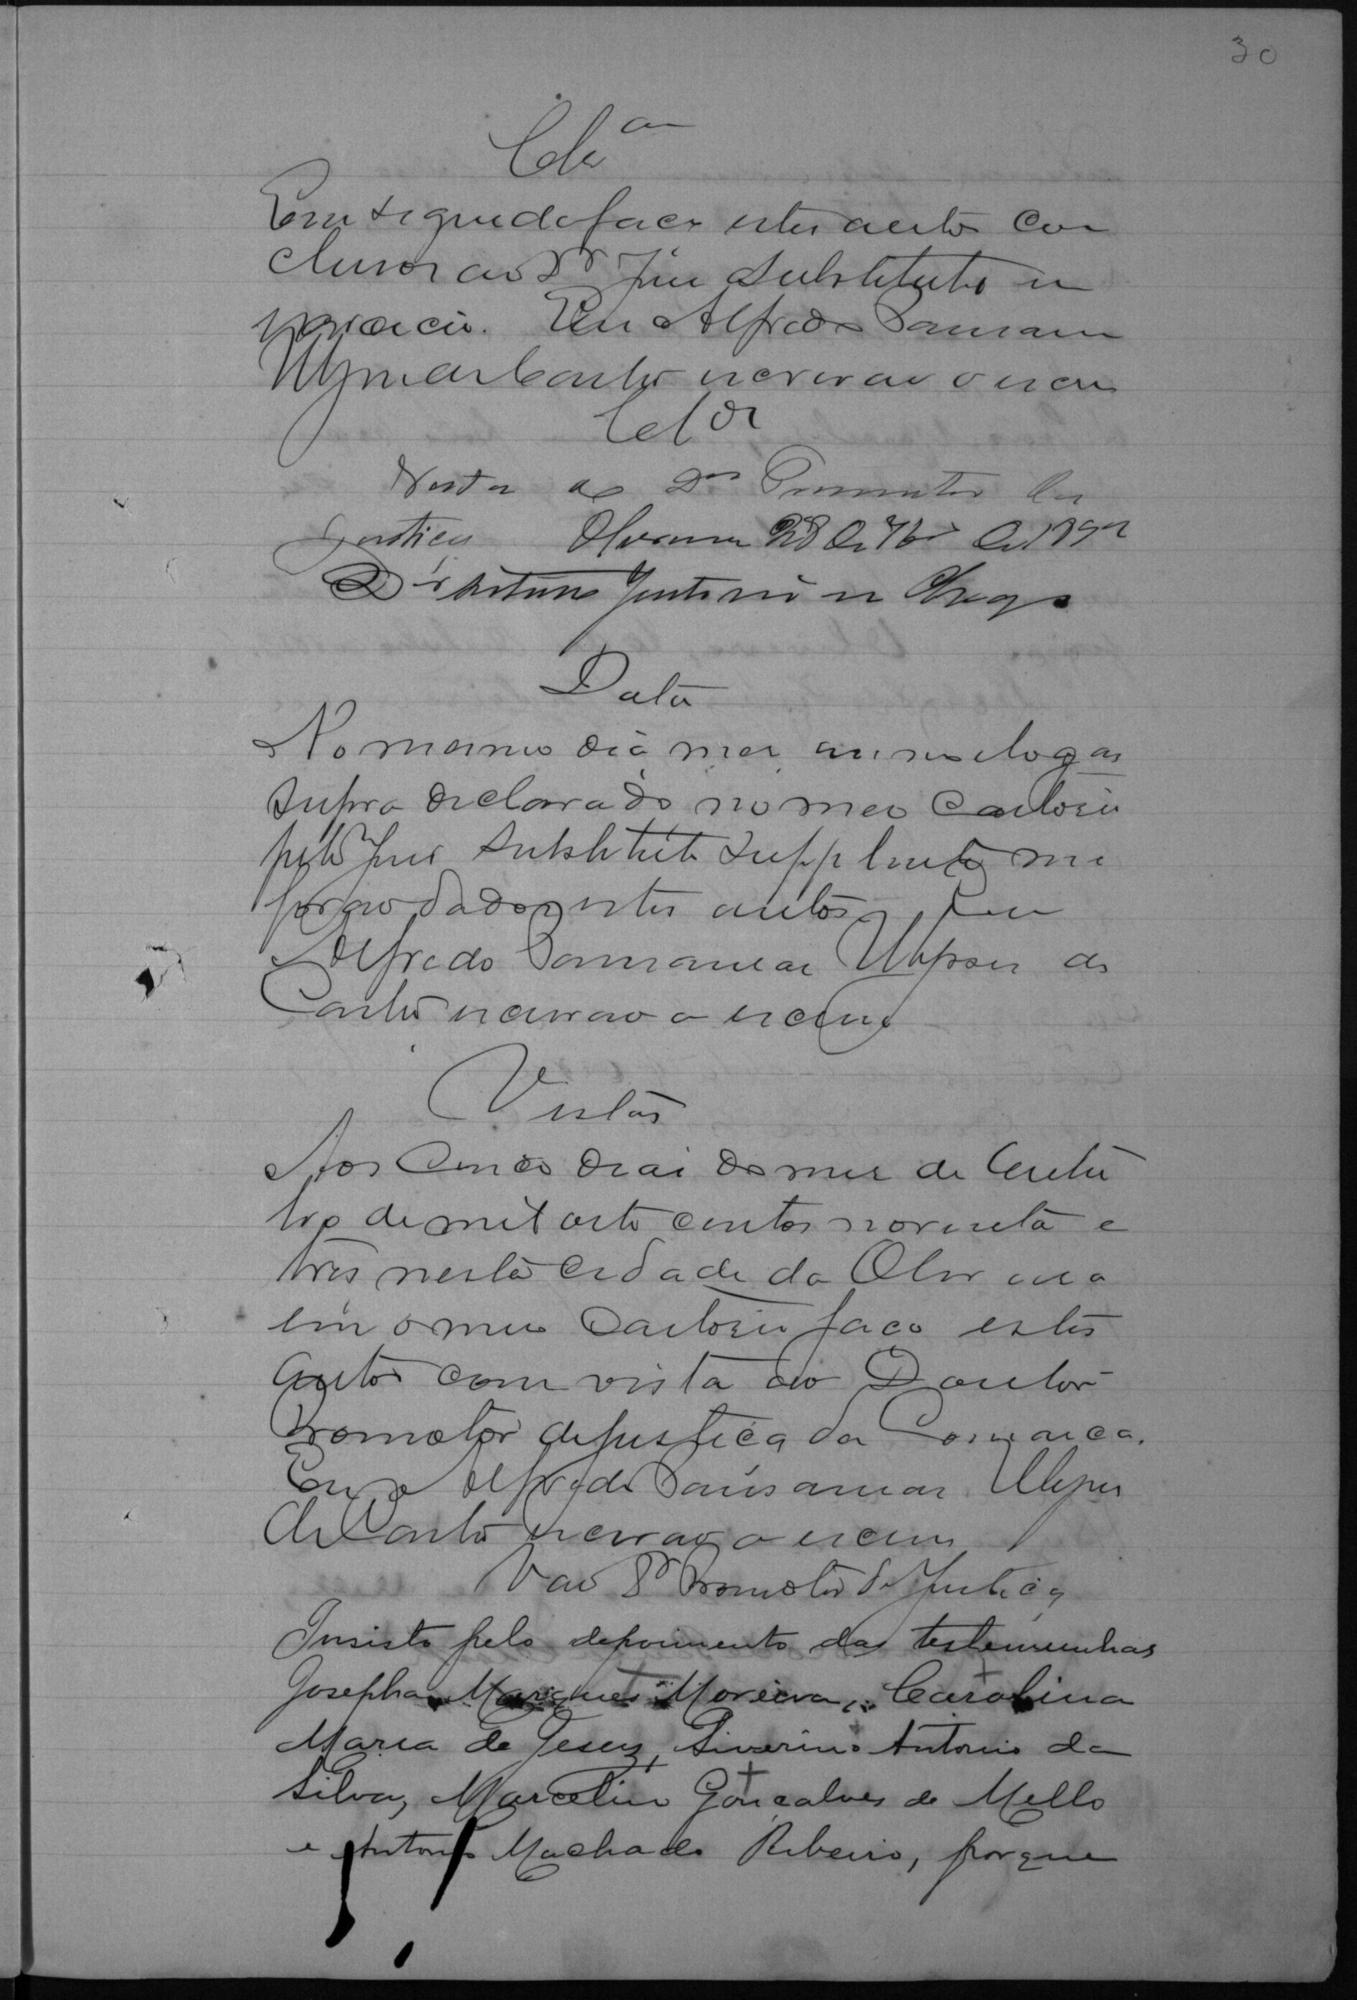 30
Cl.am
Em seguida faço estes autos con
clusos ao Dr Juiz Substituto em
exercicio. Eu Alfredo
Ulysses de Castro escrivão o escrevi
Cl.os
Vista ao Dor Promotor da
Justiça 28 de 7bro de 1893
Data
No mesmo dia mez anno e logar
supra declarado no meo Cartorio
pelo Juiz Substituto Supplente me
forão dados estes autos Eu
Alfredo Ulysses de
Castro escrivão o escrevi
Vistas
Aos Cinco dias do mez de Outu
bro de mil oito centos noventa e
três nesta cidade da
em o meu Cartorio faço estes
autos com vista ao Doutor
Promotor de Justiça da Comarca.
Eu Alfredo Ulysses
de Castro escrivão o escrevi
V ao Dr Promotor de Justiça
Insisto pelo depoimento das testemunhas
Josepha Marques Moreira, Carolina
Maria de Jesus, Siverino Antonio da
Silva, Marcelino Gonçalves de Mello
e Antonio Machado Ribeiro, porque